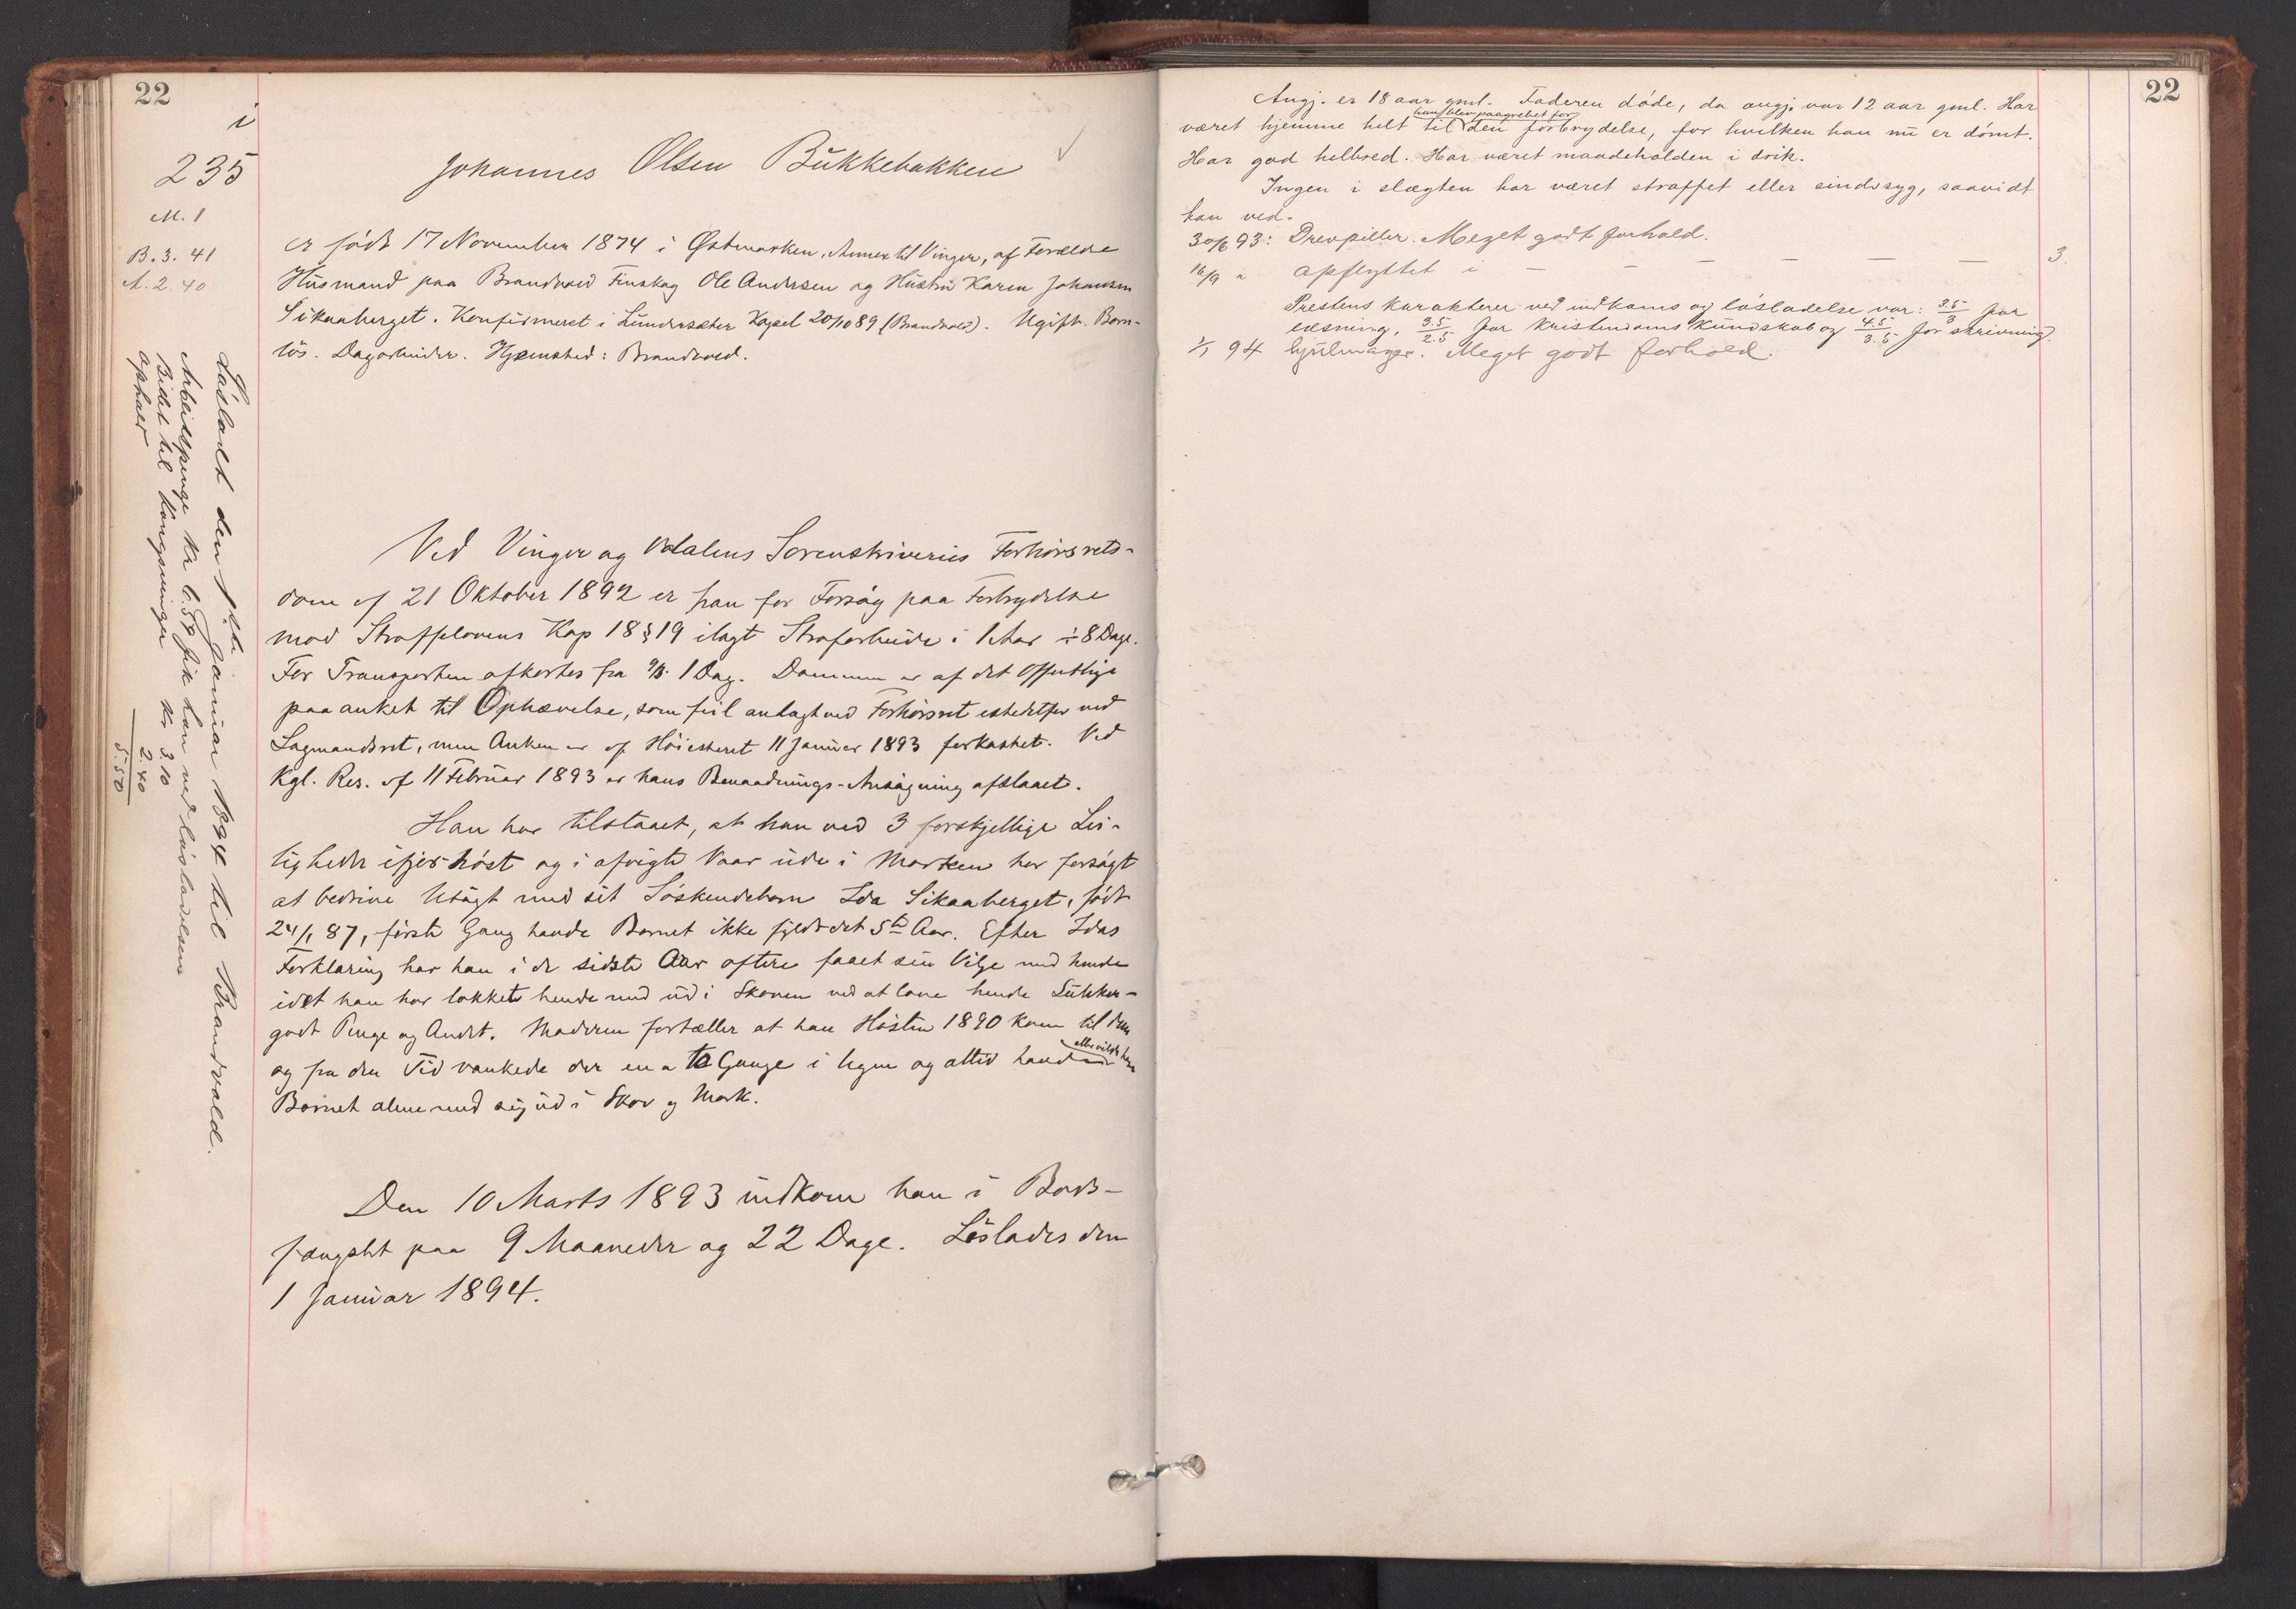 22
i
235
M. 1
B. 3. 41
A. 2. 40
Johannes Olsen Bukkebakken
er født 17 November 1874 i Østmarken, Annex til Vinger, af Forældre
Husmand paa Brandvold Finskog Ole Andersen og Hustru Karen Johansen
Sikaaberget. Konfirmeret i Lundersæter Kapel 20/10 89 (Brandvold). Ugift. Barn-
løs. Dagarbeider. Hjemsted: Brandvold.
Ved Vinger og Odalens Sorenskriveries Forhørsrets-
dom af 21 Oktober 1892 er han for Forsøg paa Forbrydelse
mod Straffelovens Kap 18 § 19 ilagt Strafarbeide i 1 Aar ÷ 8 Dage.
For Transporten afkortes fra 9/3. 1 Dag. Dommen er af det Offentlige
paaanket til Ophævelse, som feil anlagt ved Forhørsret istedetfor ved
Lagmandsret, men Anken er af Høiesteret 11 Januar 1893 forkastet. Ved
Kgl. Res. af 11 Februar 1893 er hans Benaadnings-Ansøgning afslaaet.
Han har tilstaaet, at han ved 3 forskjellige Lei-
ligheder ifjor høst og i afvigte Vaar ude i Marken har forsøgt
at bedrive Utugt med sit Søskendebarn Ida Sikaaberget, født
24/1 87, første Gang havde Barnet ikke fyldt det 5te Aar. Efter Idas
Forklaring har han i de sidste Aar oftere faaet sin Vilje med hende
idet han har lokket hende med ud i Skoven ved at love hende Sukker-
godt Penge og Andet. Moderen fortæller at han Høsten 1890 kom til dem
og fra den Tid vankede der en a to Gange i Ugen og altid havde eller vilde have
Barnet alene med sig ud i Skov og Mark.
Den 10 Marts 1893 indkom han i Bods-
fængslet paa 9 Maaneder og 22 Dage. Løslades den
1 Januar 1894.
Løsladt den 1ste Januar 1894 til Brandvold.
Arbeidspenge Kr 6.59 fik han ved løsladelsen
Bidrag til Kr 3.10
ophold 2.40
5.50
22
Angj. er 18 aar gml. Faderen døde, da angj. var 12 aar gml. Har
været hjemme helt til han blev paagrebet for den forbrydelse, for hvilken han nu er dømt.
Har god helbred. Har været maadeholden i drik.
Ingen i slægten har været straffet eller sindssyg, saavidt
han ved.
30/6 93: Drevpiller. Meget godt forhold.
16/9 " opflyttet i — — — — — — 3.
Prestens karakterer ved indkomst og løsladelse var: 3.5/3 for
læsning, 3.5/2.5 for kristendomskundskab og 4.5/3.5 for skrivning.
1/1 94 hjulmager. Meget godt forhold.